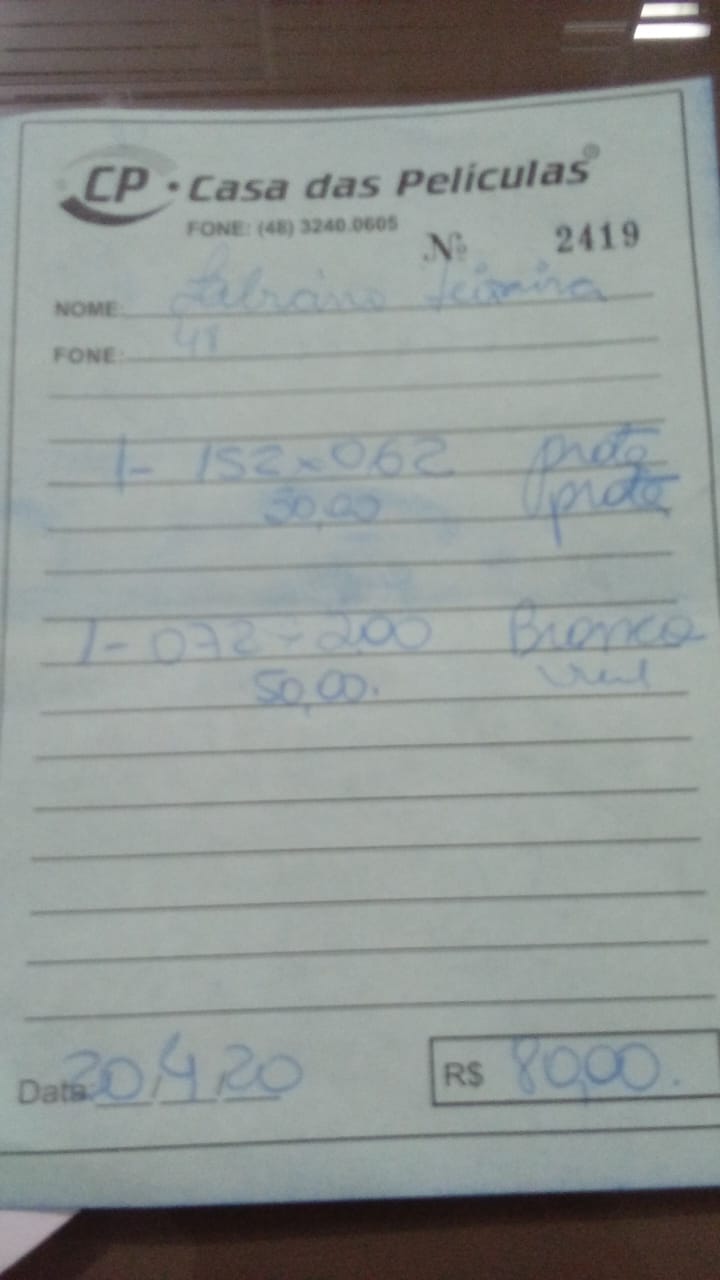 CP • Casa das Películas®
FONE: (48) 3240.0605
Nº 2419
NOME: Fabiano Teixeira
FONE: 48
1- 152 x 062 prata
30,00 prata
1- 072 - 200 Branco
50,00.
Data 20/4/20
R$ 80,00.